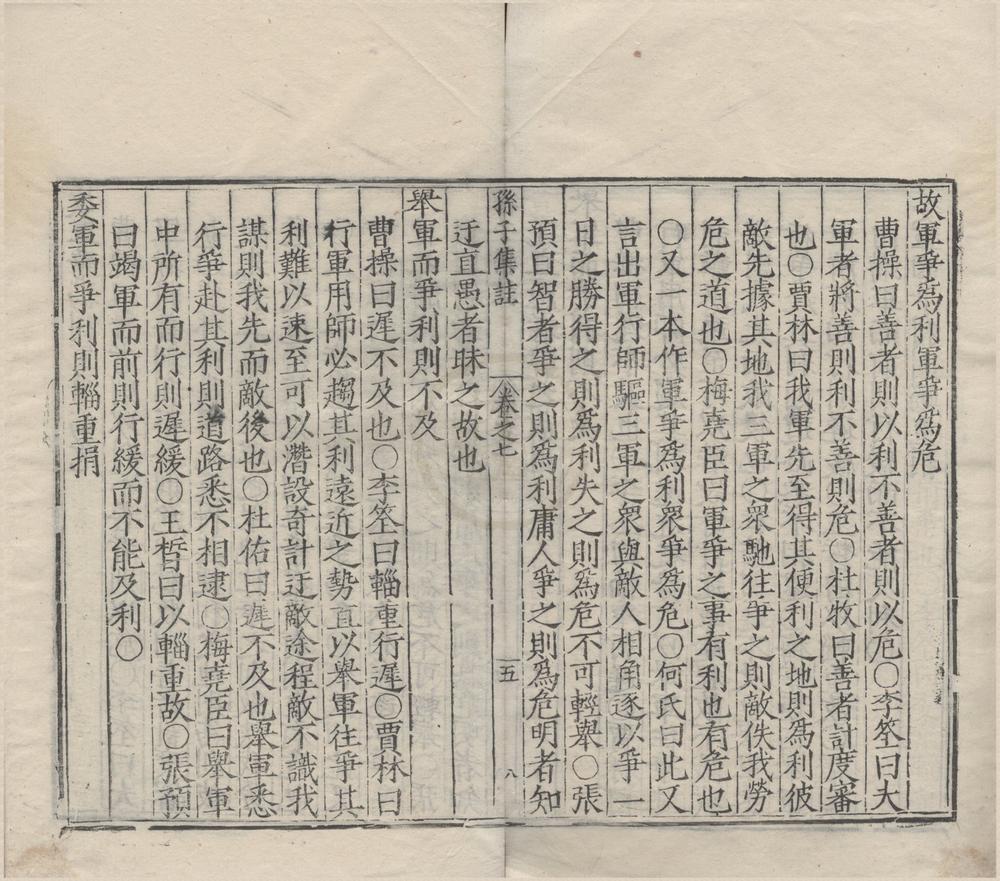 故軍爭爲利軍爭爲危
曹操曰善者則以利不善者則以危〇李筌曰夫
軍者將善則利不善則危〇杜牧曰善者計度審
也〇賈林曰我軍先至得其便利之地則爲利彼
敵先據其地我三軍之衆馳往爭之則敵佚我勞
危之道也〇梅堯臣曰軍爭之事有利也有危也
〇又一本作軍爭爲利衆爭爲危〇何氏曰此又
言出軍行師驅三軍之衆與敵人相角逐以爭一
日之勝得之則爲利失之則爲危不可輕舉〇張
預曰智者爭之則爲利庸人爭之則爲危明者知
孫子集註 卷之七 五 八
迂直愚者昧之故也
舉軍而爭利則不及
曹操曰遲不及也〇李筌曰輜重行遲〇賈林曰
行軍用師必趨其利遠近之勢直以舉軍往爭其
利難以速至可以潛設奇計迂敵途程敵不識我
謀則我先而敵後也〇杜佑曰遲不及也舉軍悉
行爭赴其利則道路悉不相逮〇梅堯臣曰舉軍
中所有而行則遲緩〇王晳曰以輜重故〇張預
曰竭軍而前則行緩而不能及利〇
委軍而爭利則輜重捐